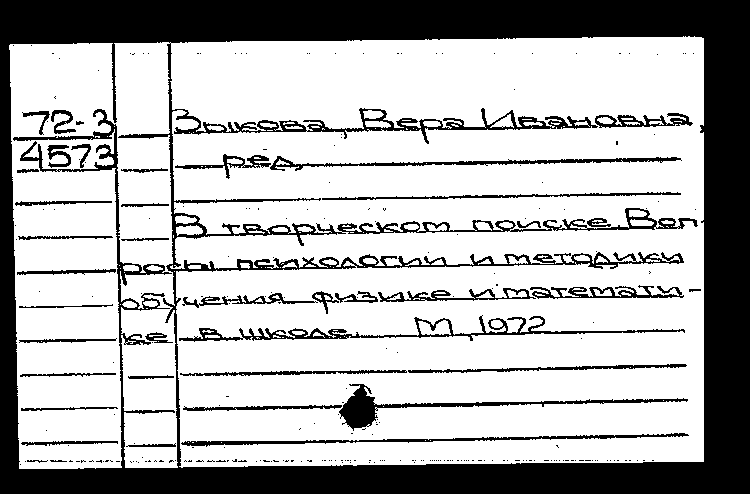 72-3 Зыкова, Вера Ивановна,
4573 ред.
В творческом поиске. Воп-
росы психологии и методики
обучения физике и математи-
ке в школе. М., 1972